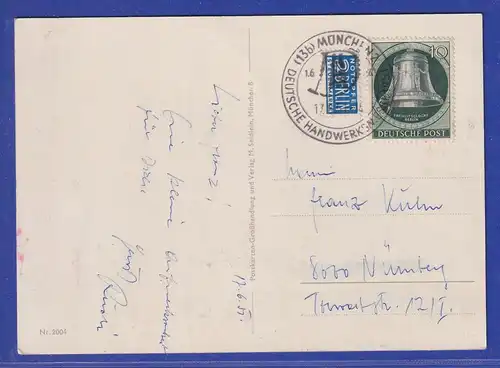 (13b) MÜNCHEN
DEUTSCHE HANDWERKS
1.6
17
NOTOPFER
2 BERLIN
STEUERMARKE
10
FREIHEITSGLOCKE
BERLIN
DEUTSCHE POST
Postkarten-Großhandlung und Verlag H. Seidlein, München 8
Eine kleine Aufmerksamkeit
für Dich
Gruß
17.6.51.
Herrn
Franz Kuhn
Nürnberg
12/I.
Nr. 2004